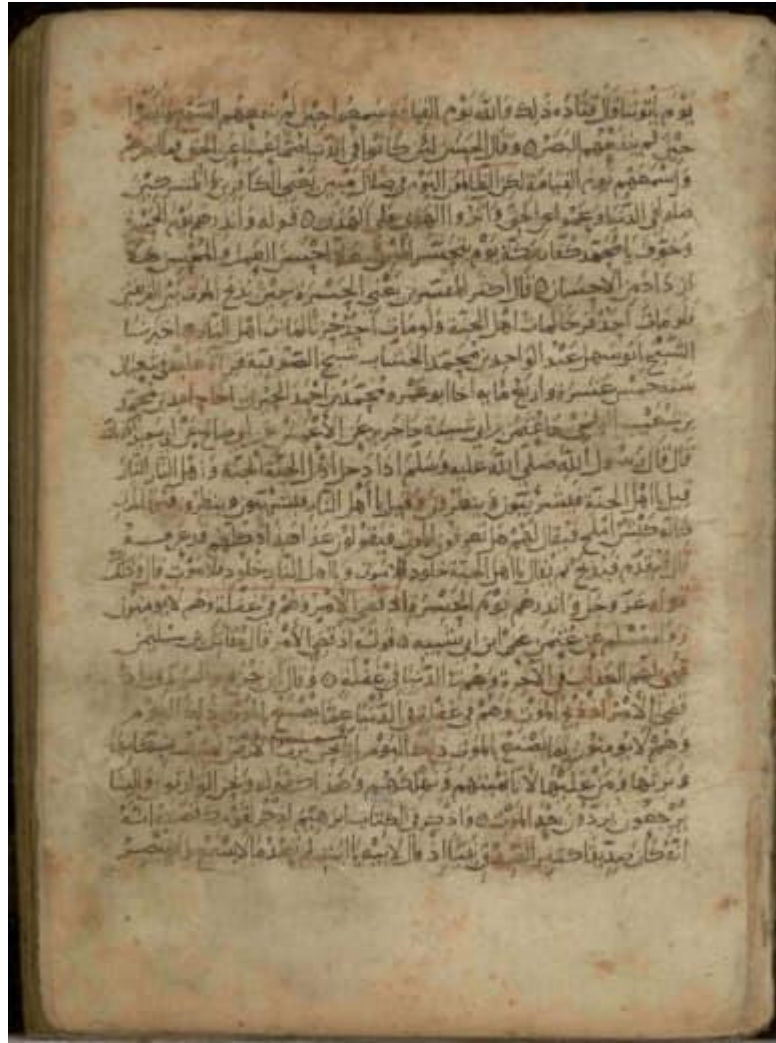 يوم يأتوننا قال قتادة ذلك والله يوم القيامة سمعوا حين لم ينفعهم السمع وأبصروا
حين لم ينفعهم البصر ٥ وقال الحسن لئن كانوا في الدنيا صما عميا عن الحق فما أبصرهم
وأسمعهم يوم القيامة لكن الظالمون اليوم في ضلال مبين يعني الكافرين والمشركين
الهدى ٥ قوله وأنذرهم يوم الحسرة
وخوف يا محمد كفار مكة يوم يتحسر المسيء هلا أحسن العمل والمحسن هلا
ازداد من الإحسان ٥ قال أكثر المفسرين يعني الحسرة حين يذبح الموت بين الفريقين
فلو مات أحد فرحا لمات أهل الجنة ولو مات أحد حزنا لمات أهل النار ٥ أخبرنا
الشيخ أبو سهل عبد الواحد بن محمد الخشاب شيخ الصوفية قراءة عليه في
سنة خمس عشرة وأربع مائة أنا أبو عمرو محمد بن أحمد الحيري أنا حامد بن محمد
بن شعيب البلخي نا عثمن بن أبي شيبة نا جرير عن الأعمش عن أبي صالح عن أبي سعيد
قال قال رسول الله صلى الله عليه وسلم إذا دخل أهل الجنة الجنة وأهل النار النار
قيل يا أهل الجنة فيشرئبون وينظرون وقيل يا أهل النار فيشرئبون وينظرون
كبش أملح فيقال لهم هل تعرفون الموت فيقولون هذا هذا وكلهم قد عرفه
قال فيقدم فيذبح ثم يقال يا أهل الجنة خلود فلا موت ويا أهل النار خلود فلا موت قال وذلك
قوله عز وجل وأنذرهم يوم الحسرة إذ قضي الأمر وهم في غفلة وهم لا يؤمنون
رواه مسلم عن عثمن بن أبي شيبة ٥ قوله إذ قضي الأمر قال مقاتل بن سليمن
قضي لهم العذاب في الآخرة وهم في الدنيا في غفلة ٥ وقال ابن جريج والسدي إذ
قضي الأمر إذ ذبح الموت وهم في غفلة في الدنيا عما يصنع بالموت ذلك اليوم
وهم لا يؤمنون بما يصنع بالموت ذلك اليوم إنا نحن نرث الأرض
ومن عليها لأنا نميتهم ونهلكهم وهذا كقوله ونحن الوارثون وإلينا
يرجعون يردون بعد الموت ٥ واذكر في الكتاب إبراهيم
إنه كان صديقا نبيا إذ قال لأبيه يا أبت لم تعبد ما لا يسمع ولا يبصر